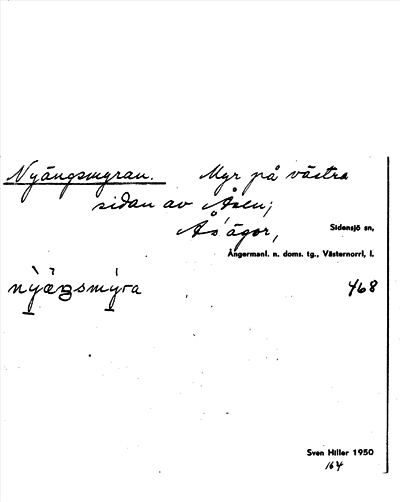 Nyängsmyran. Myr på västra
sidan av Åsen;
Ås' ägor,
Sidensjö sn,
Ångermanl. n. doms. tg., Västernorrl, l.
468
Sven Hiller 1950
164